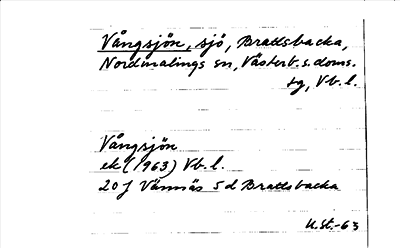 Vångsjön, sjö, Brattsbacka,
Nordmalings sn, Västerb. s. doms.
tg, Vb. l.
Vångsjön
ek (1963) Vb. l.
20 J Vännäs 5 d Brattsbacka
U. St. -63